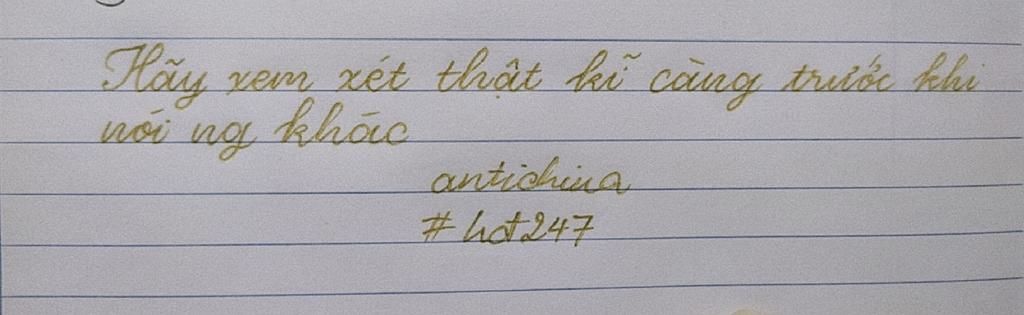 Hãy xem xét thật kĩ càng trước khi
nói ng khác
antichina
# hot247